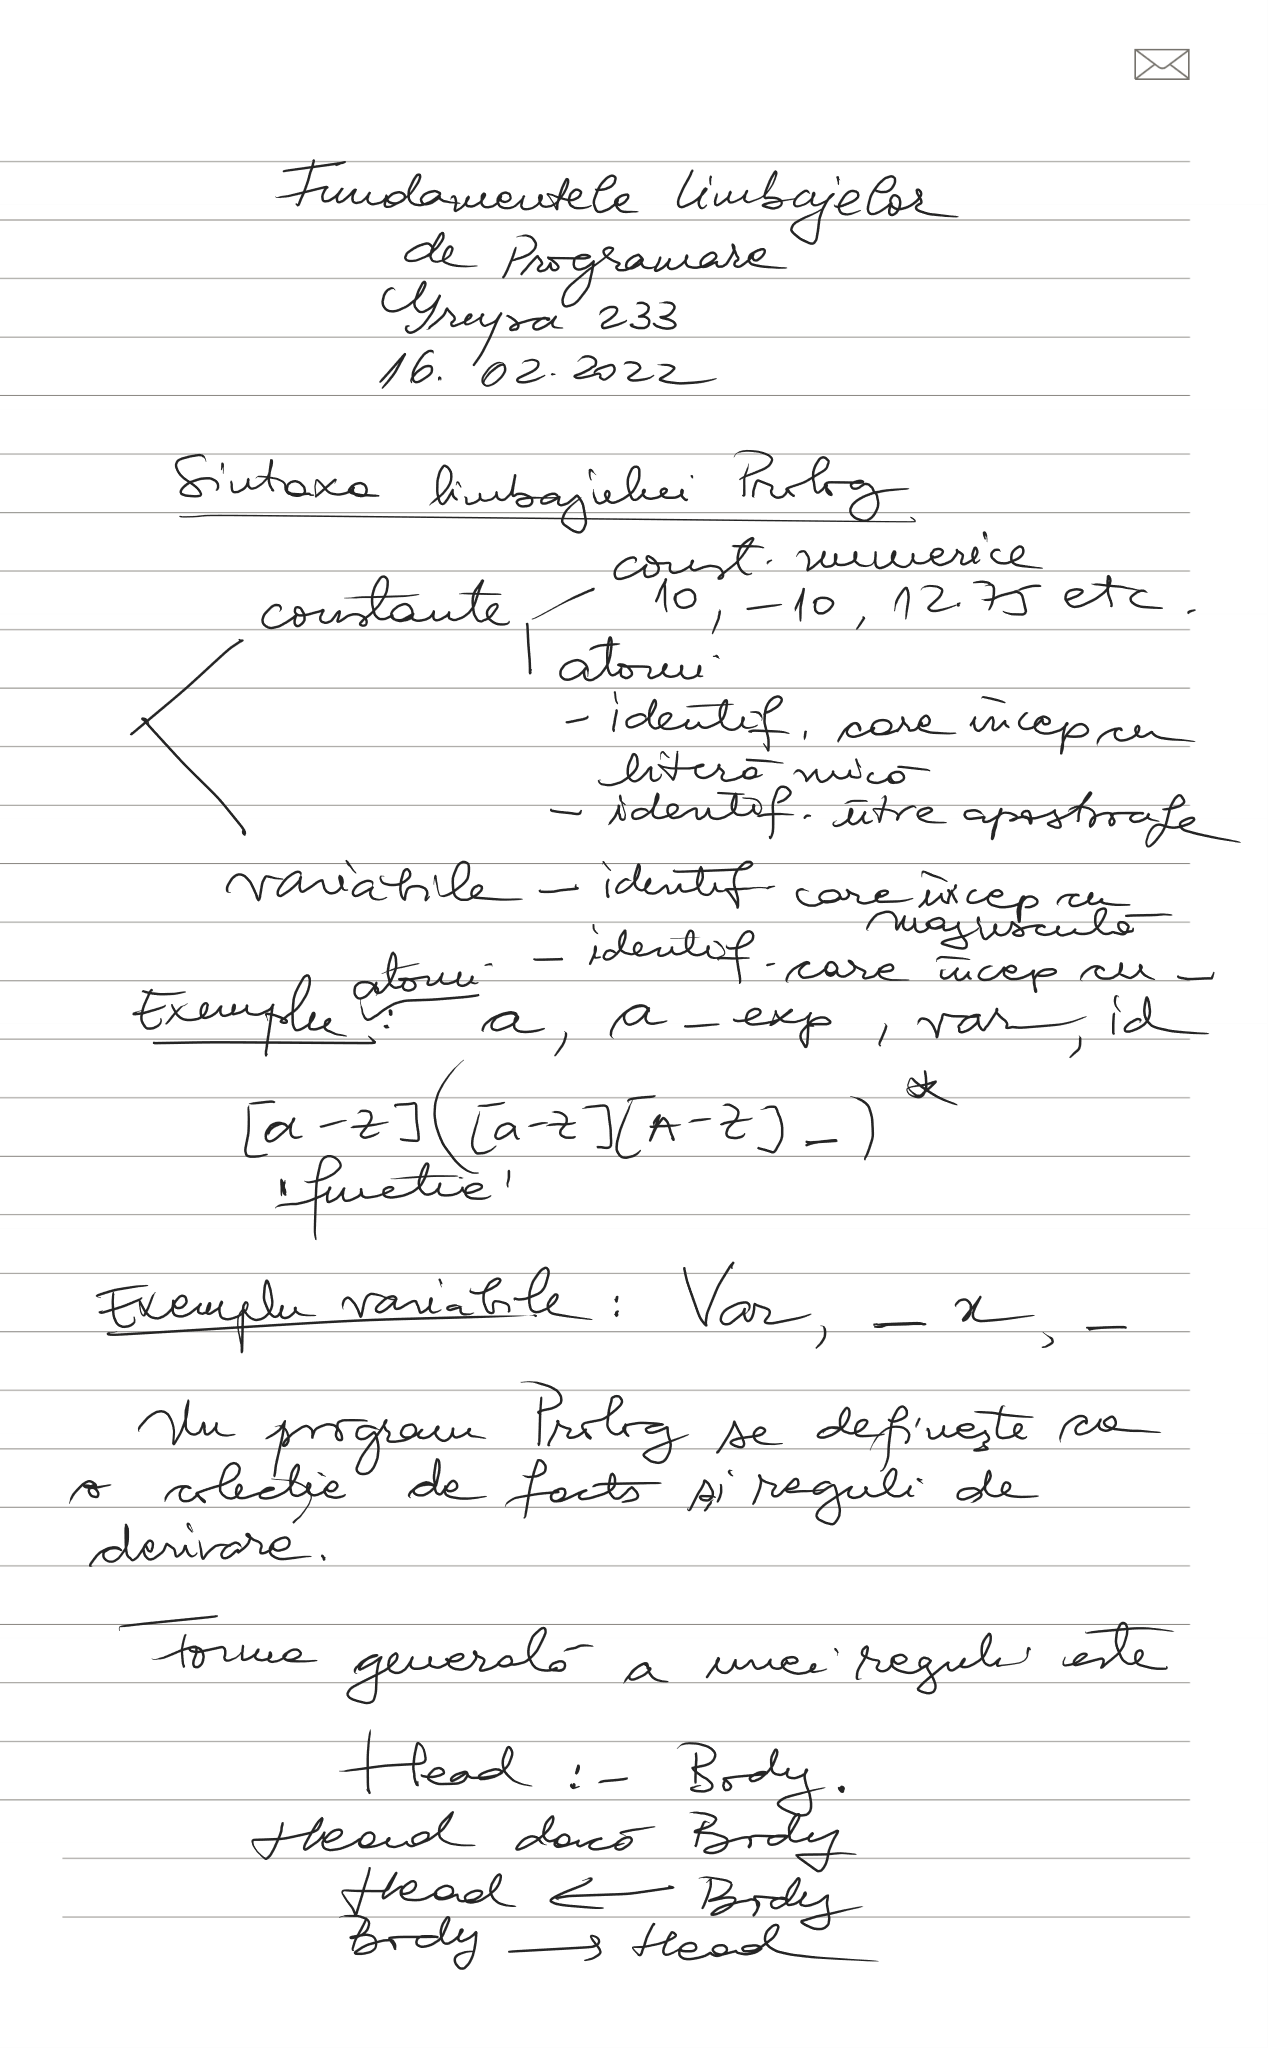 Fundamentele limbajelor
de Programare
Grupa 233
16. 02. 2022
Sintaxa limbajului Prolog
const. numerice
constante 10, -10, 12.75 etc.
atomi
- identif. care încep cu
literă mică
- identif. între apostrofe
variabile - identif care încep cu
majusculă
- identif. care încep cu _
Exemplu atomi : a, a_exp, var, id
[a-z]([a-z][A-Z]_)*
'functie'
Exemplu variabile : Var, _x, _
Un program Prolog se definește ca
o colecție de facts și reguli de
derivare.
Forma generală a unei reguli este
Head :- Body.
Head dacă Body
Head ← Body
Body → Head